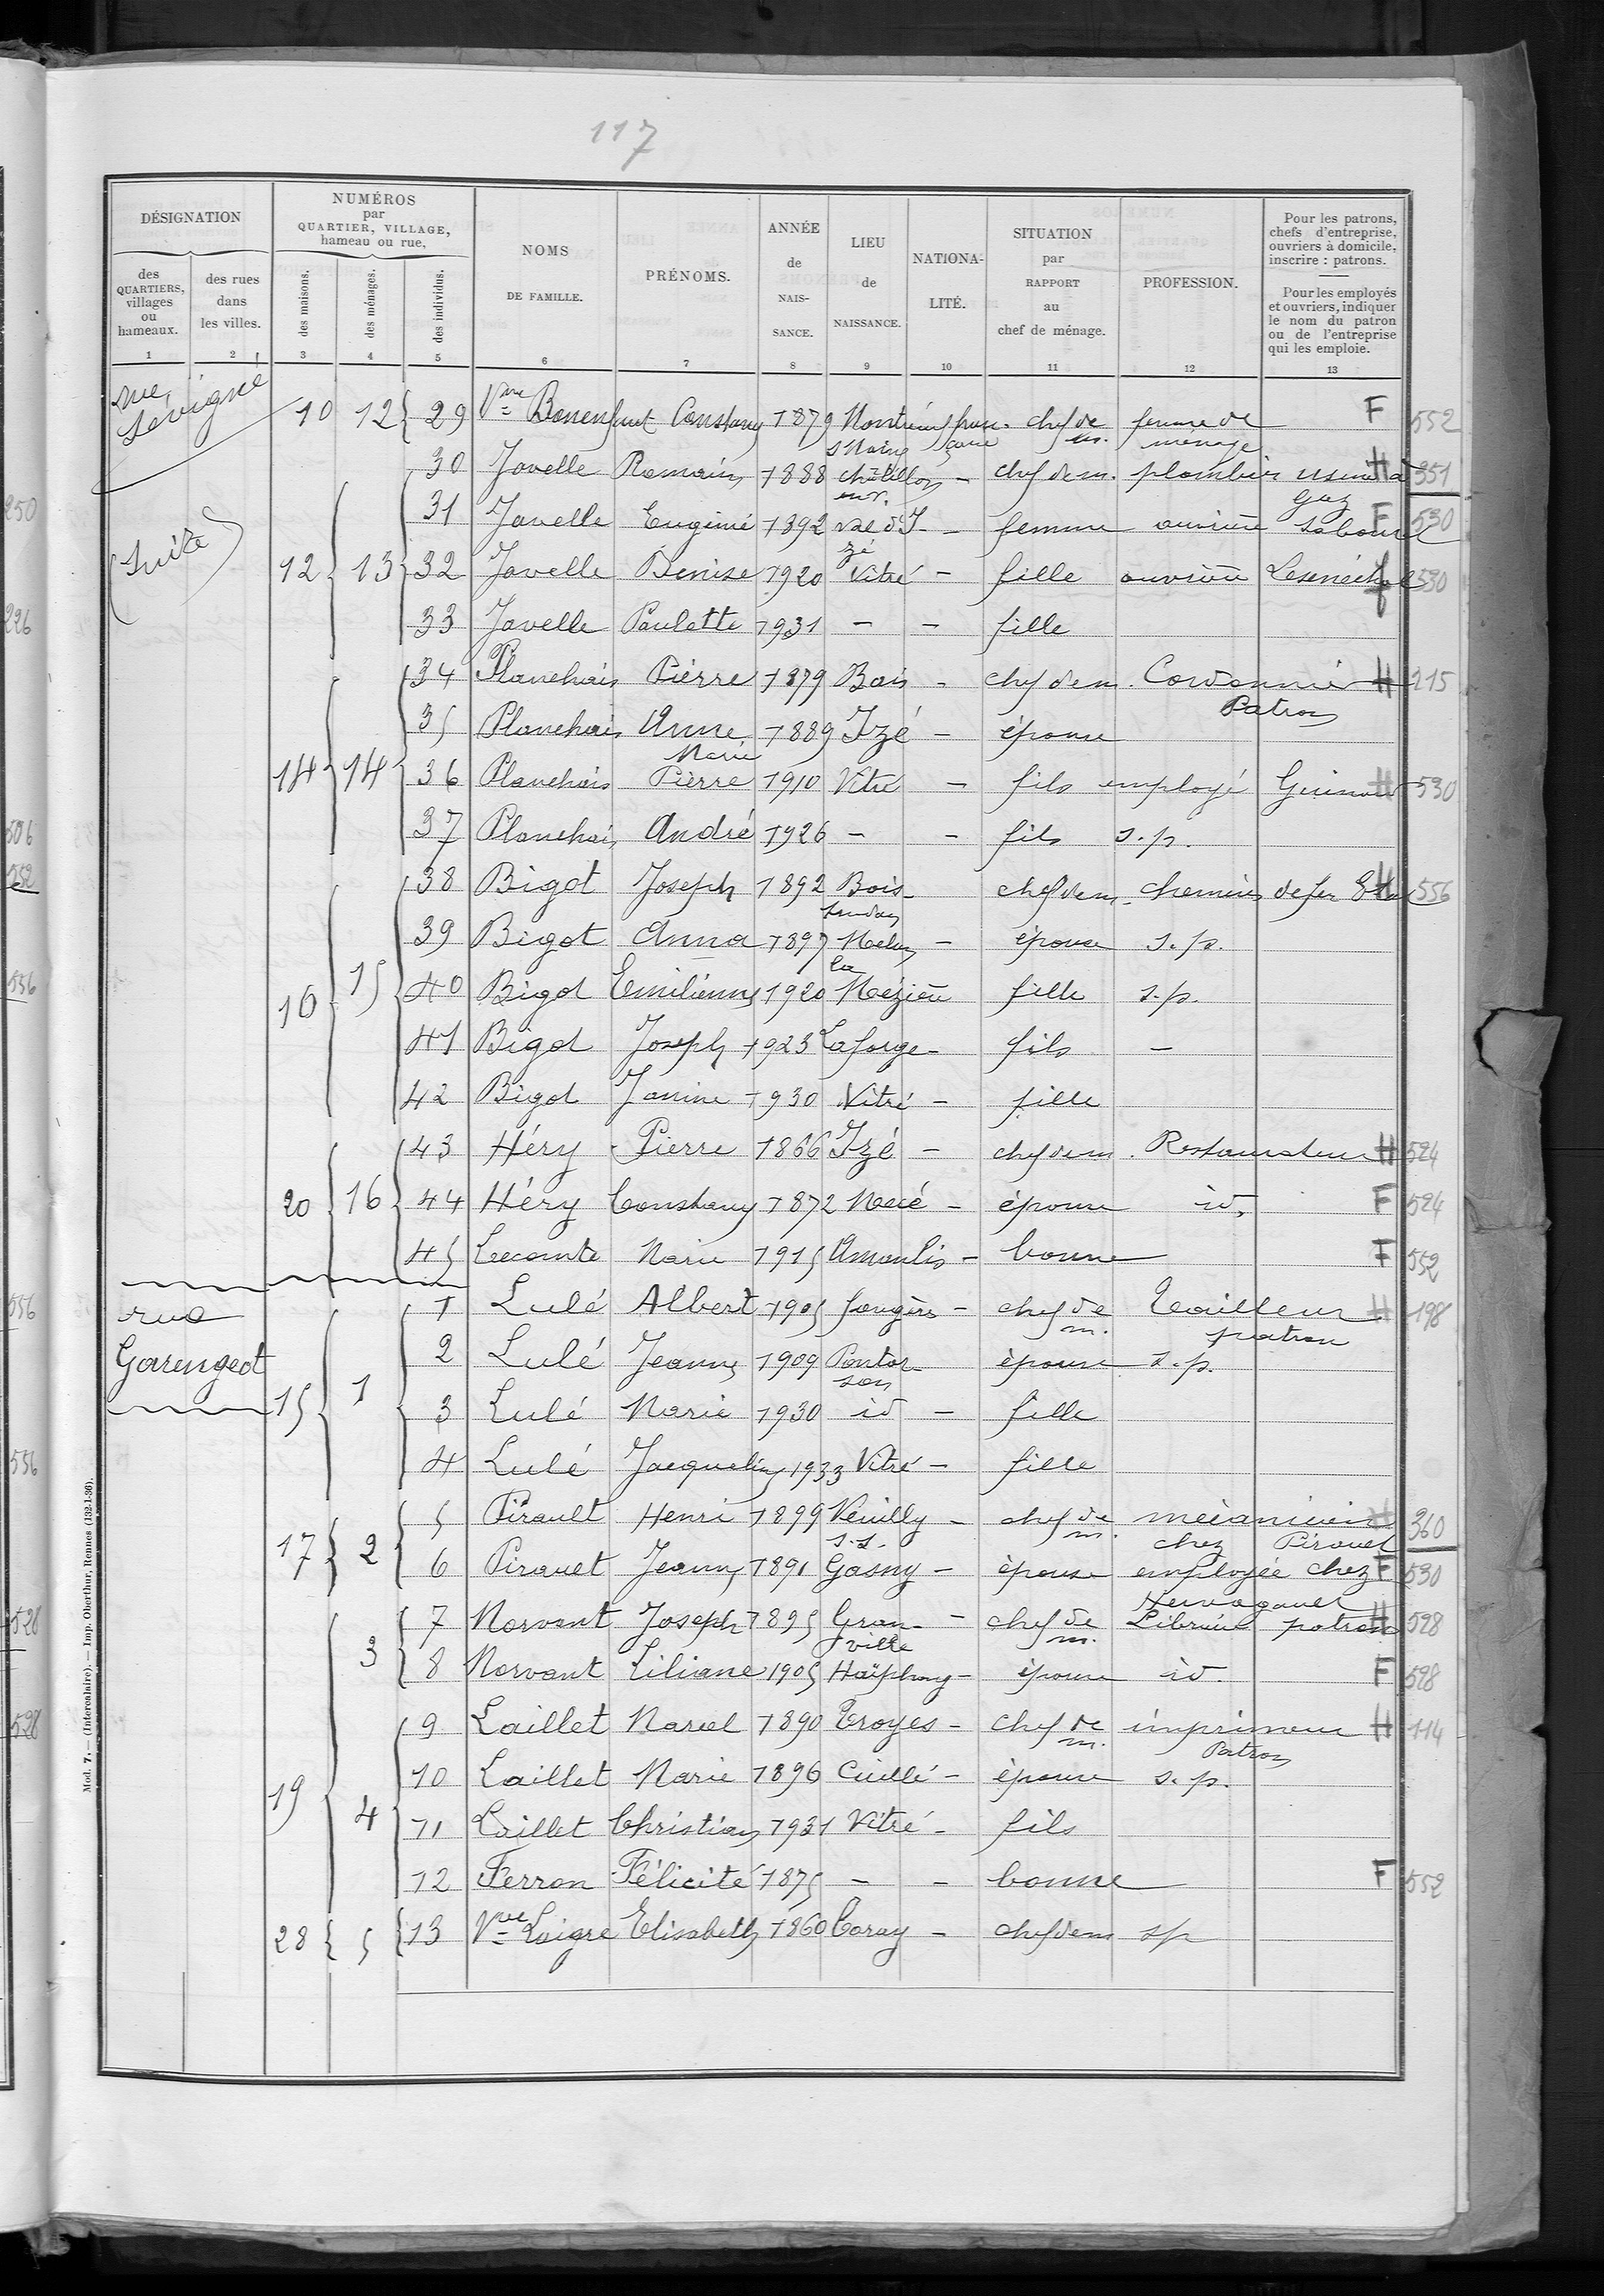 117
DÉSIGNATION
NUMÉROS
par
QUARTIER, VILLAGE,
hameau ou rue,
des
QUARTIERS,
villages
ou
hameaux.
des rues
dans
les villes.
des maisons.
des ménages.
des individus.
NOMS
DE FAMILLE.
PRÉNOMS.
ANNÉE
de
NAIS-
SANCE.
LIEU
de
NAISSANCE.
NATIONA-
LITÉ.
SITUATION
par
RAPPORT
au
chef de ménage.
PROFESSION.
Pour les patrons,
chefs d'entreprise,
ouvriers à domicile,
inscrire : patrons.
Pour les employés
et ouvriers, indiquer
le nom du patron
ou de l'entreprise
qui les emploie.
1 2 3 4 5 6 7 8 9 10 11 12 13
rue
Sévigné
(suite)
10 12 29 Vve Bonenfant Constance 1879 chef de m. femme de ménage F 552
30 Javelle Romain 1888 Châtillon en V. - chef de m. plombier usine à Gaz H 351
31 Javelle Eugénie 1892 Val d'Izé - femme ouvrière F 530
12 13 32 Javelle Denise 1920 Vitré - fille ouvrière Lesénéchal f 530
33 Javelle Paulette 1931 - - fille
34 Planchais Pierre 1879 Bais - chef de m. Cordonnier Patron H 215
35 Planchais Anne Marie 1889 Izé - épouse
14 14 36 Planchais Pierre 1910 Vitré - fils employé H 530
37 Planchais André 1926 - - fils s.p.
38 Bigot Joseph 1892 chef de m. chemins de fer Etat H 556
39 Bigot Anna 1897 - épouse s.p.
16 15 40 Bigot Emilienne 1920 la Mézière fille s.p.
41 Bigot Joseph 1923 Laforge - fils -
42 Bigot Janine 1930 Vitré - fille
43 Héry Pierre 1866 Izé - chef de m. Restaurateur H 524
20 16 44 Héry Constance 1872 Mecé - épouse id. F 524
45 Lecomte Marie 1915 Amanlis - bonne F 552
rue
Garengeot
1 Lulé Albert 1905 fougères - chef de m. Tailleur patron H 198
2 Lulé Jeanne 1909 Pontorson épouse s.p.
15 1 3 Lulé Marie 1930 id - fille
4 Lulé Jacqueline 1933 Vitré - fille
5 Pirault Henri 1899 Neuilly s.s. - chef de m. mécanicien chez Pirouet H 360
17 2 6 Pirouet Jeanne 1891 Gasny - épouse employée chez Hervagault F 530
7 Morvant Joseph 1895 Granville - chef de m. Libraire patron H 528
3 8 Morvant Liliane 1905 Haïphong - épouse id. F 528
9 Laillet Marcel 1890 Troyes - chef de m. imprimeur Patron H 114
10 Laillet Marie 1896 Cuillé - épouse s.p.
19 4 11 Laillet Christian 1931 Vitré - fils
12 Ferron Félicité 1875 - - bonne F 552
28 5 13 Vve Laigre Elisabeth 1860 Coray - chef de m sp
Mod. 7. — (Intercalaire). — Imp. Oberthur, Rennes (132-1-36).
250
226
506
252
556
556
556
528
528